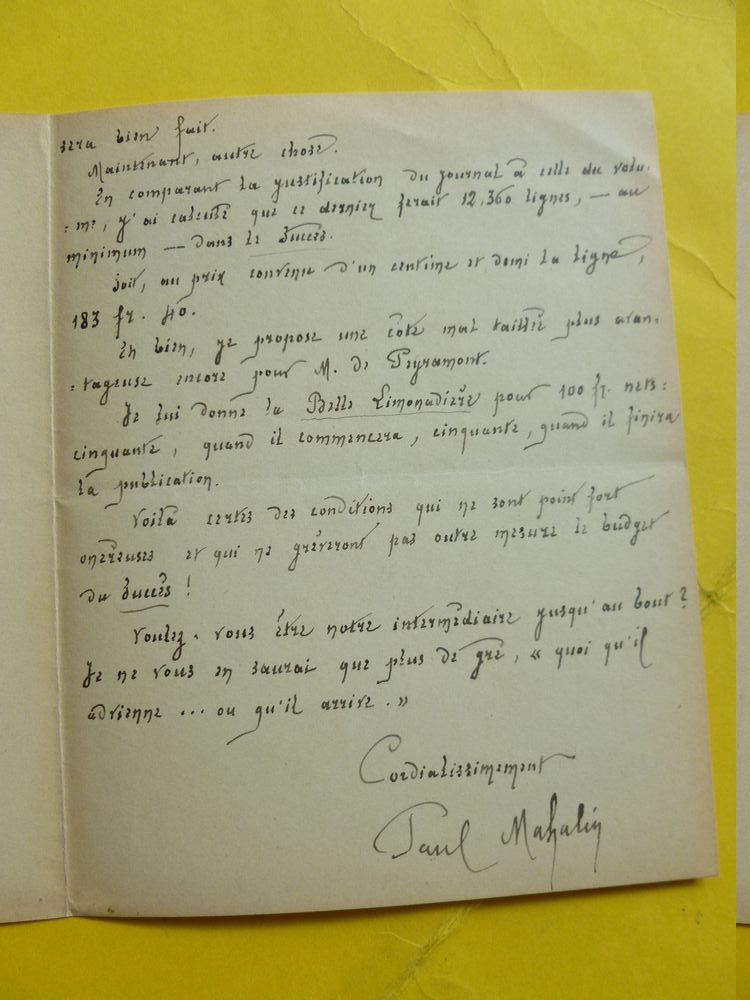 sera bien fait.
Maintenant, autre chose.
En comparant la justification du journal à celle du volu-
:me, j'ai calculé que ce dernier ferait 12,360 lignes, — au
minimum — dans le Succès.
Soit, au prix convenu d'un centime et demi la ligne,
183 fr. 40.
Eh bien, je propose une côte mal taillée plus avan-
:tageuse encore pour M. de Peyramont.
Je lui donne la Belle Limonadière pour 100 fr. nets:
cinquante, quand il commencera, cinquante, quand il finira
la publication.
Voilà certes des conditions qui ne sont point fort
onéreuses et qui ne grèveront pas outre mesure le budget
du Succès !
Voulez-vous être notre intermédiaire jusqu'au bout ?
Je ne vous en saurai que plus de gré, « quoi qu'il
advienne ... ou qu'il arrive. »
Cordialissimement
Paul Mahalin